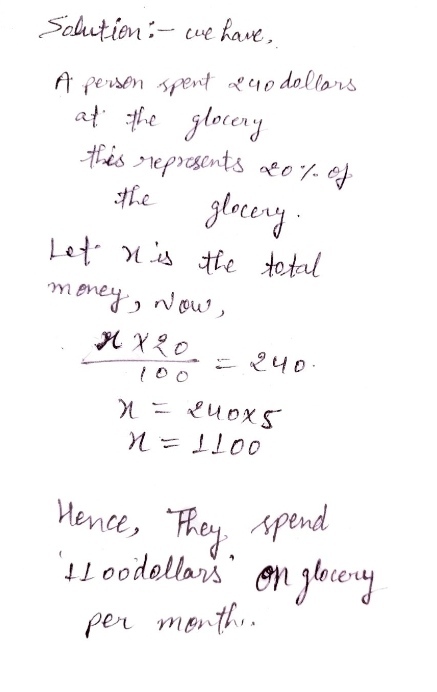 Solution:- we have,
A person spent 240 dollars
at the glocery
this represents 20% of
the glocery.
Let x is the total
money, Now,
x × 20 / 100 = 240.
x = 240×5
x = 1100
Hence, They spend
"1100 dollars" on glocery
per month..